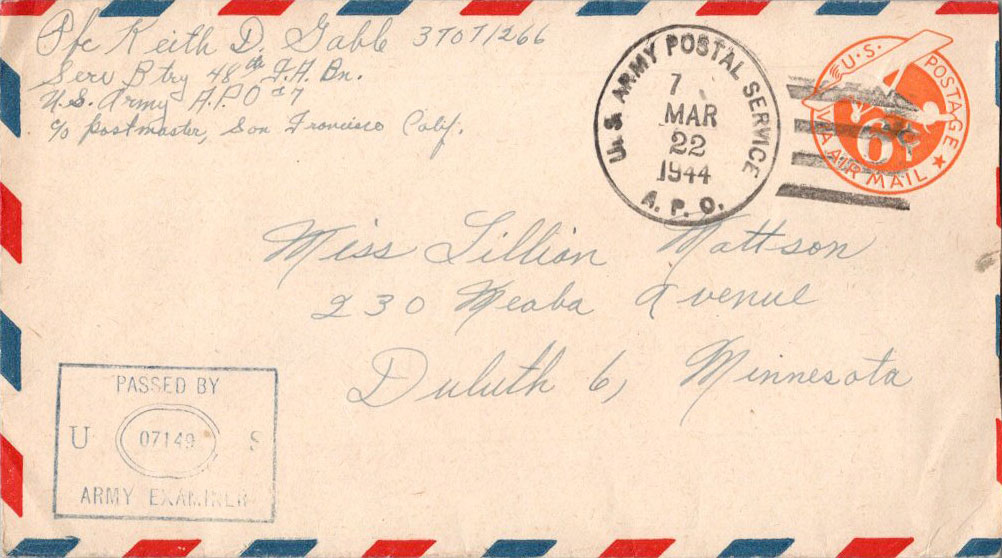 Pfc Keith D. Gable 37071266
Serv Btry 48th F.A. Bn.
U.S. Army A.P.O #7
c/o Postmaster, San Francisco Calif.
U.S. ARMY POSTAL SERVICE
7
MAR
22
1944
A.P.O.
U.S. POSTAGE
6¢
VIA AIR MAIL
Miss Lillian Mattson
230 Meaba Avenue
Duluth 6, Minnesota
PASSED BY
U 07149 S
ARMY EXAMINER